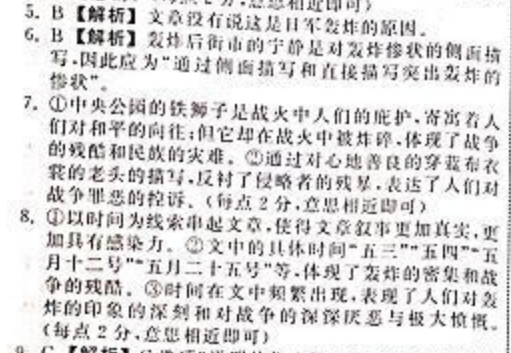 2 分,意思相近即可)
5. B【解析】文章没有说这是日军轰炸的原因。
6. B【解析】轰炸后街市的宁静是对轰炸惨状的侧面描
写,因此应为“通过侧面描写和直接描写突出轰炸的
惨状”。
7. ①中央公园的铁狮子是战火中人们的庇护,寄寓着人
们对和平的向往;但它却在战火中被炸碎,体现了战争
的残酷和民族的灾难。②通过对心地善良的穿蓝布衣
裳的老头的描写,反衬了侵略者的残暴,表达了人们对
战争罪恶的控诉。(每点 2 分,意思相近即可)
8. ①以时间为线索串起文章,使得文章叙事更加真实,更
加具有感染力。②文中的具体时间“五三”“五四”“五
月十二号”“五月二十五号”等,体现了轰炸的密集和战
争的残酷。③时间在文中频繁出现,表现了人们对轰
炸的印象的深刻和对战争的深深厌恶与极大愤慨。
(每点 2 分,意思相近即可)
9. C【解析】